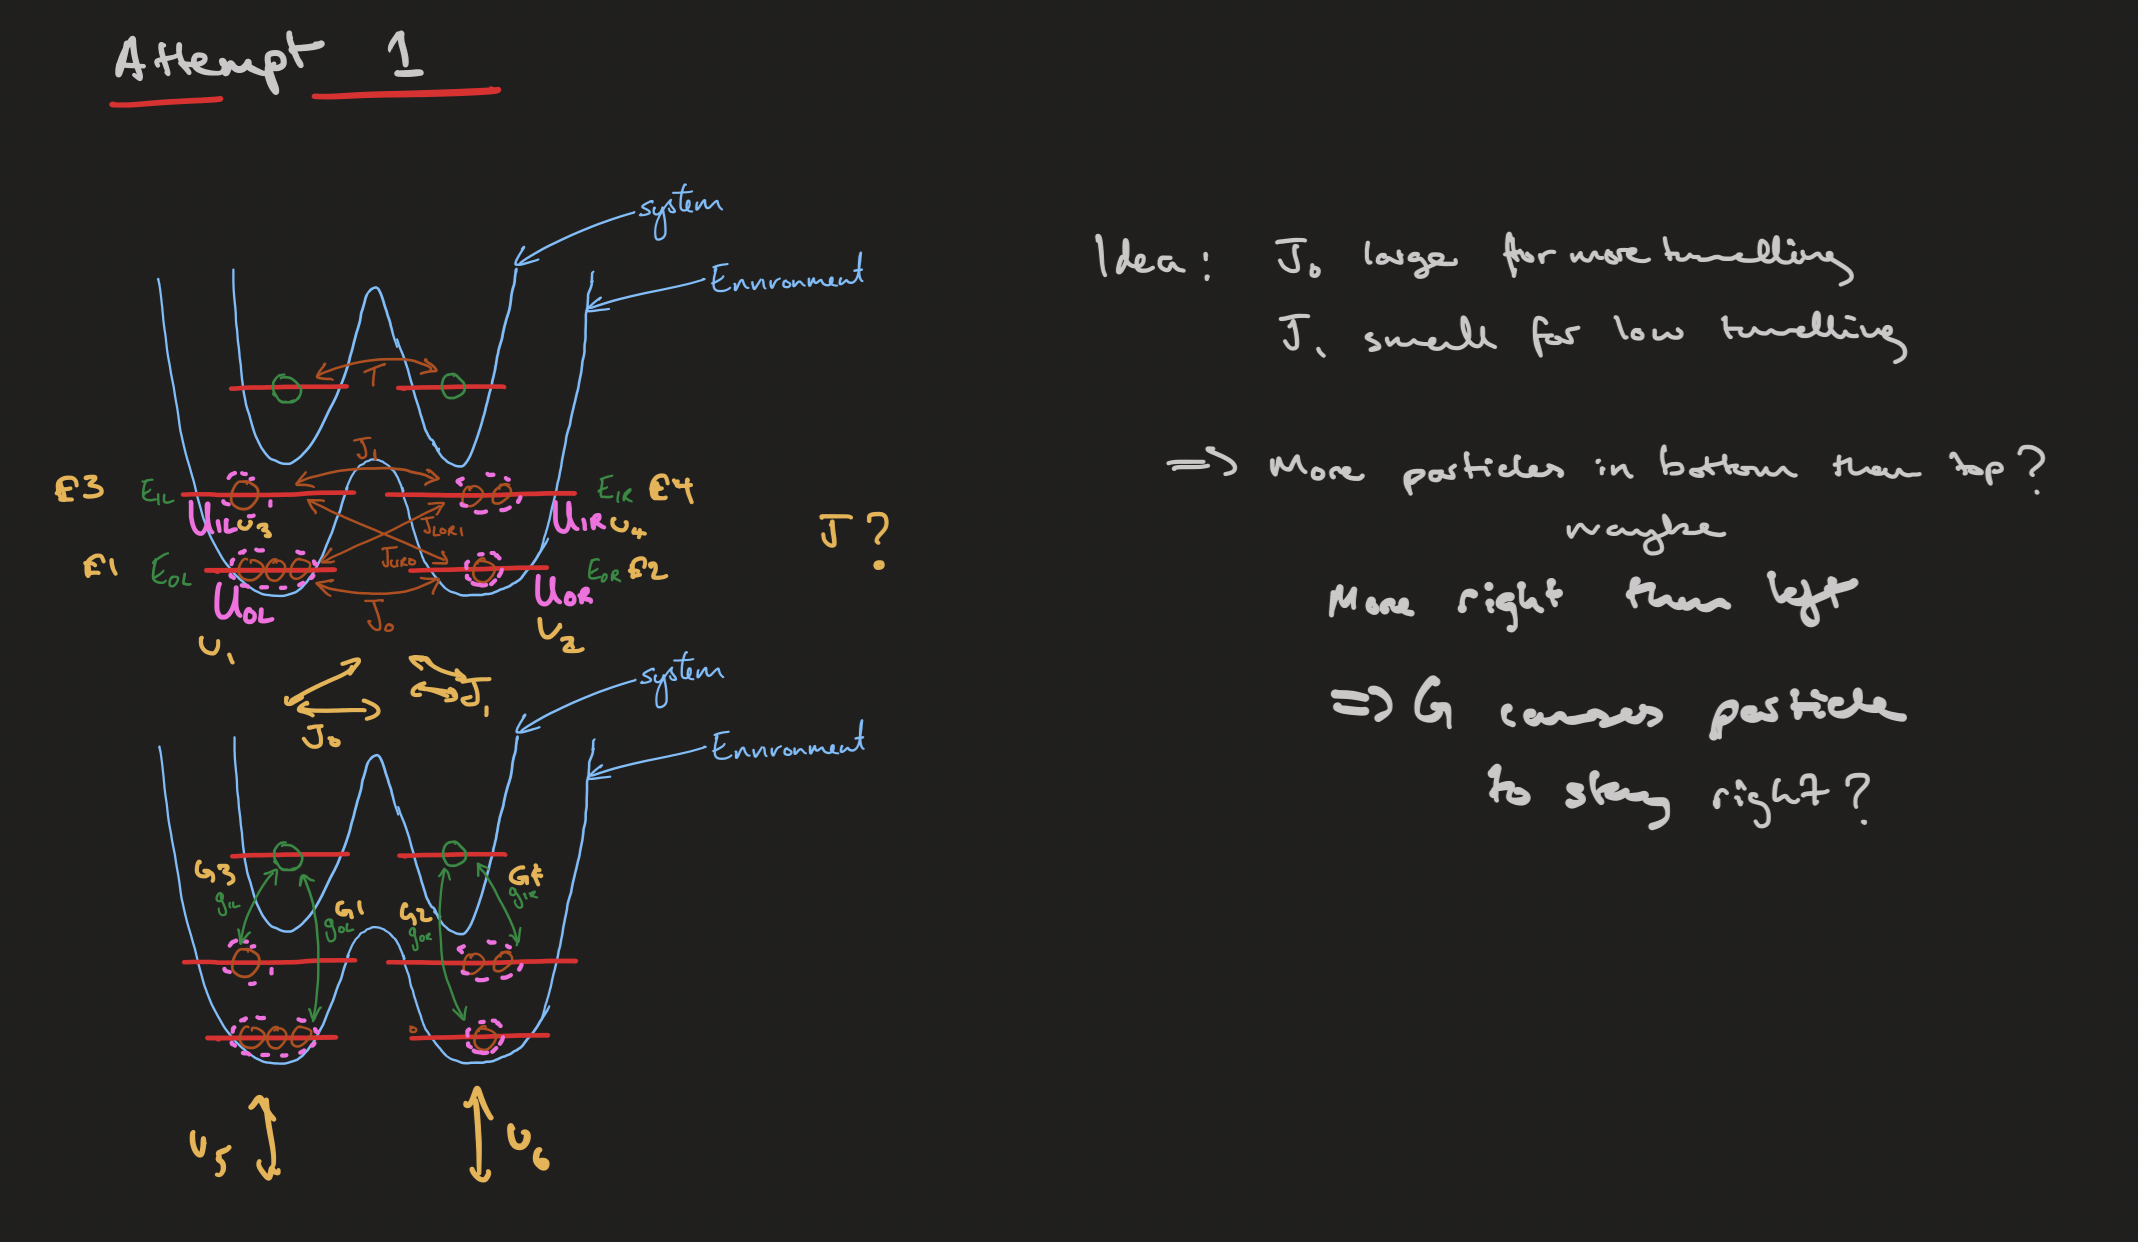 Attempt 1
system
Environment
T
J1
E3 E1L E1R E4
U1L U3 U1R U4
JL0R1
JL1R0
E1 E0L E0R E2
U0L U0R
J0
U1 U2
J0 J1
J?
system
Environment
G3 G4
g1L g1R
G1 G2
g0L g0R
U5 U6
Idea: J0 large for more tunnelling
J1 small for low tunnelling
=> More particles in bottom than top?
maybe
More right than left
=> G causes particle
to stay right?